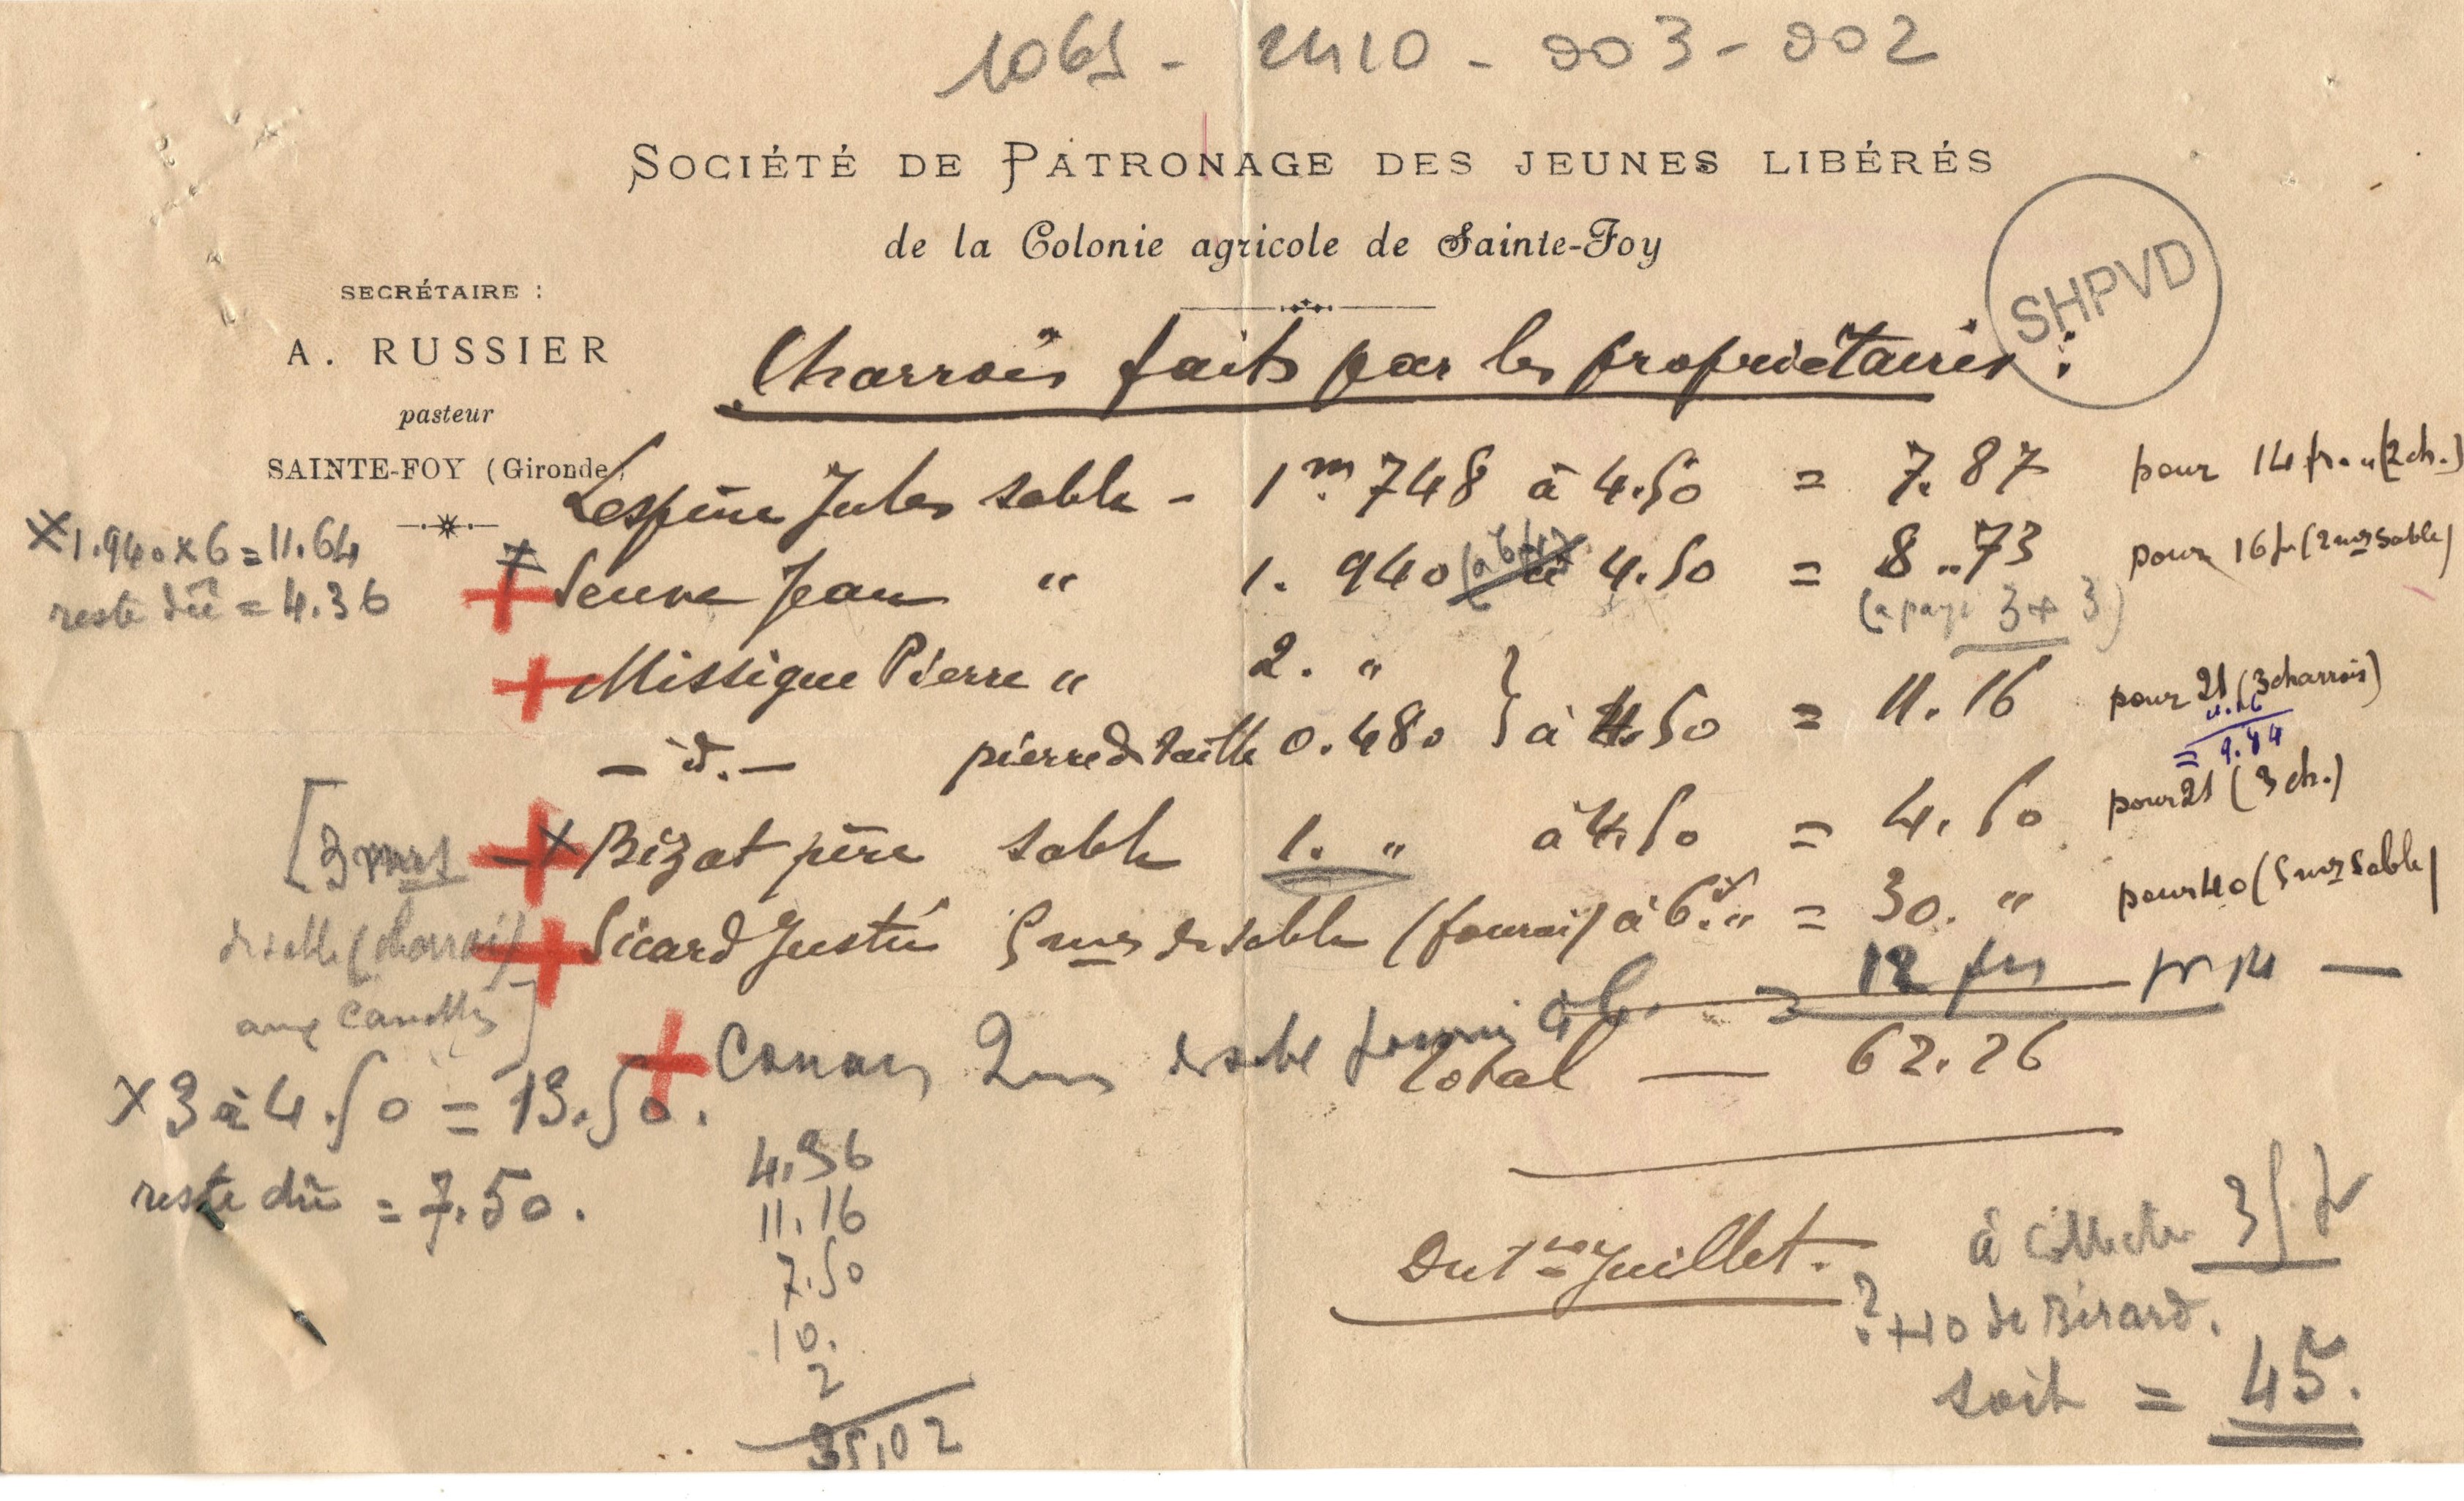 1065 - 2410 - 003 - 002
SOCIÉTÉ DE PATRONAGE DES JEUNES LIBÉRÉS
de la Colonie agricole de Sainte-Foy
SHPVD
SECRÉTAIRE :
A. RUSSIER
pasteur
SAINTE-FOY (Gironde)
Charrois faits par les propriétaires :
Lespine Jules sable - 1 m. 748 à 4.50 = 7.87 pour 14 fr. (2 ch.)
x 1.940 x 6 = 11.64
reste dû = 4.36
Jean " 1. 940 à 4.50 = 8.73 pour 16 fr (2 mes sable)
(a payé 3 + 3)
Missigue Pierre " 2. "
- id. - pierre de taille 0.480 } à 4.50 = 11.16 pour 21 (3 charrois)
11.16
= 9.84
[3 mes
de sable (charroi)
aux
x Bizat père sable 1. " à 4.50 = 4.50 pour 21 (3 ch.)
Sicard Justin 5 mes de sable (fourni) à 6f. " = 30. " pour 40 (5 mes sable)
2 mes de sable fourni à 6. = 12 frs pr 14 —
Total — 62.26
x 3 à 4.50 = 13.50.
reste dû = 7.50.
4.36
11.16
7.50
10.
2
35,02
Du 1er Juillet.
à collecter 35 fr
? + 10 de Bérard.
soit = 45.